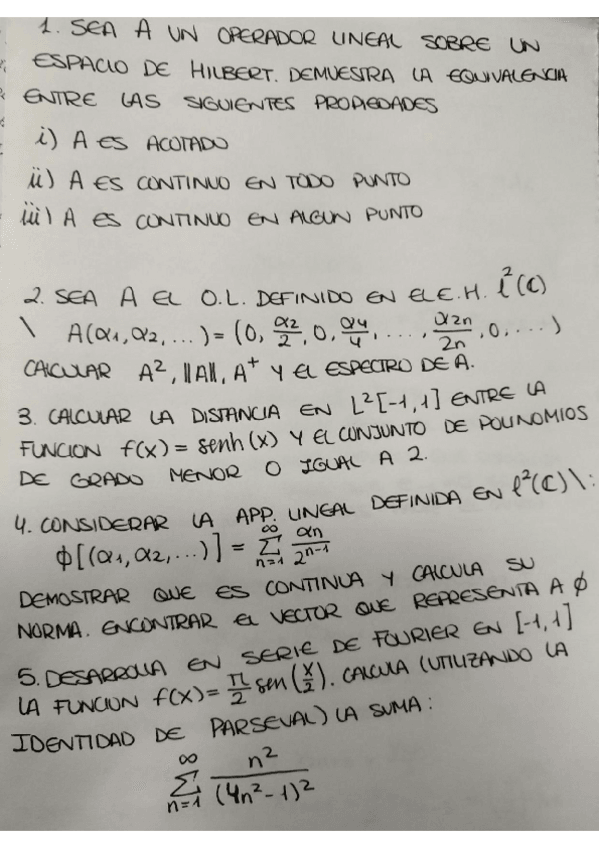 1. SEA A UN OPERADOR LINEAL SOBRE UN
ESPACIO DE HILBERT. DEMUESTRA LA EQUIVALENCIA
ENTRE LAS SIGUIENTES PROPIEDADES
i) A ES ACOTADO
ii) A ES CONTINUO EN TODO PUNTO
iii) A ES CONTINUO EN ALGUN PUNTO
2. SEA A EL O.L. DEFINIDO EN EL E.H. l²(C)
\ A(α1, α2, ...) = (0, α2/2, 0, α4/4, ..., α2n/2n, 0, ...)
CALCULAR A², ||A||, A⁺ Y EL ESPECTRO DE A.
3. CALCULAR LA DISTANCIA EN L²[-1,1] ENTRE LA
FUNCION f(x) = senh(x) Y EL CONJUNTO DE POLINOMIOS
DE GRADO MENOR O IGUAL A 2.
4. CONSIDERAR LA APP. LINEAL DEFINIDA EN l²(C) \:
ϕ[(α1, α2, ...)] = ∑_{n=1}^{∞} αn/2^{n-1}
DEMOSTRAR QUE ES CONTINUA Y CALCULA SU
NORMA. ENCONTRAR EL VECTOR QUE REPRESENTA A ϕ
5. DESARROLLA EN SERIE DE FOURIER EN [-1,1]
LA FUNCION f(x) = π/2 sen(x/2). CALCULA (UTILIZANDO LA
IDENTIDAD DE PARSEVAL) LA SUMA:
∑_{n=1}^{∞} n²/(4n²-1)²